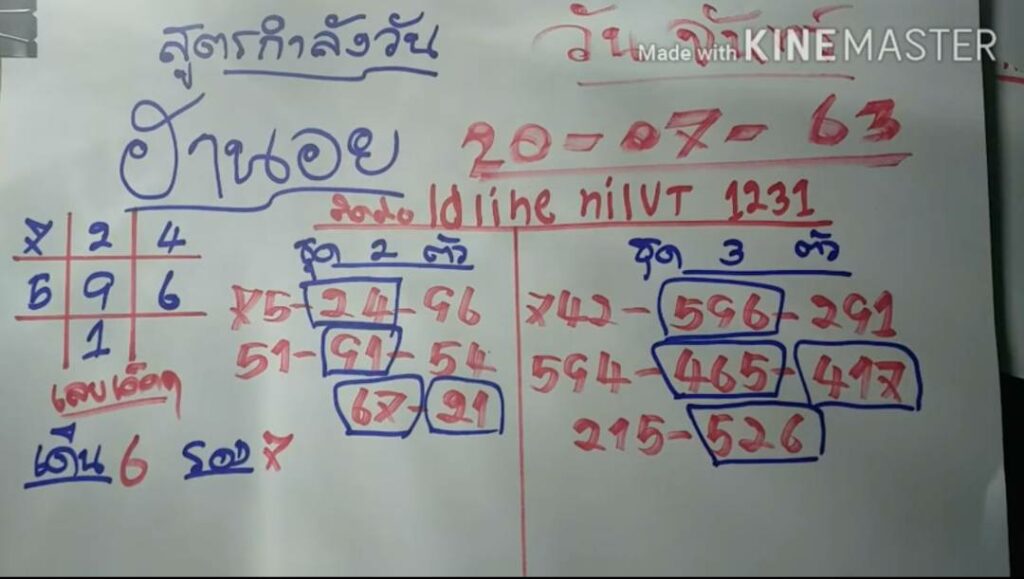 สูตรกำลังวัน
วันจันทร์
Made with KINEMASTER
ฮานอย
20-07-63
ติดต่อ Id line nilVT 1231
7 2 4
5 9 6
1
ชุด 2 ตัว
75-24-96
51-91-54
67-21
ชุด 3 ตัว
742-596-291
594-465-417
215-526
เลขเด็ดๆ
เด่น 6 รอง 7